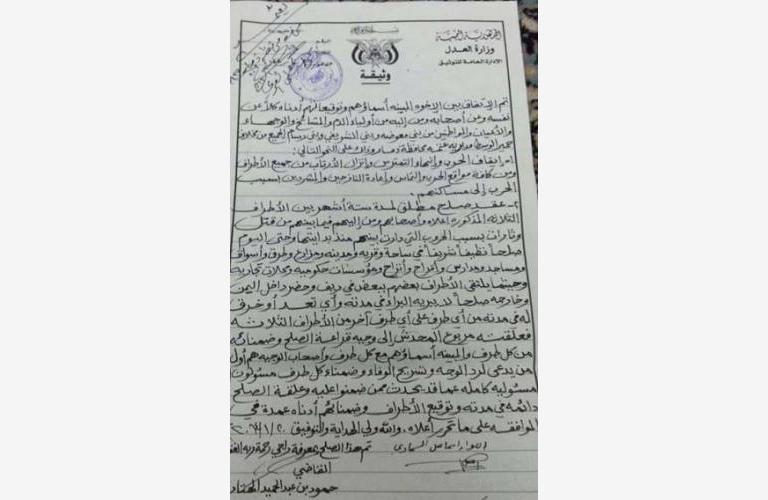 الجمهورية اليمنية
وزارة العدل
الإدارة العامة للتوثيق
وثيقة
تم الاتفاق بين الاخوه المبينه أسماؤهم وتوقيعاتهم أدناه كلاً عن
نفسه ومن أصحابه ومن إليه من أولياء الدم والمشائخ والوجهاء
والأعيان والمواطنين من بني معوضه وبني الشريف وبني وسام الجميع من مخلاف
حمير الوسط مديرية عتمه محافظة ذمار وذلك على النحو التالي:
١- إيقاف الحرب وإنهاء التمترس وإنزال الأرقاب من جميع الأطراف
ومن كافة مواقع الحرب والتماس وإعادة النازحين والمشردين بسبب
الحرب إلى مساكنهم.
٢- عقد صلح مطلق لمدة ستة أشهر بين الأطراف
الثلاثة المذكوره أعلاه وأصحابهم ومن إليهم فيما بينهم من قتل
وثارات بسبب الحروب التي دارت بينهم منذ بدايتها وحتى اليوم
صلحاً نظيفاً شريفاً في ساحة وقريه ومدينه ومزارع وطرق وأسواق
ومساجد ومدارس وأفراح وأتراح ومؤسسات حكوميه ومحلات تجاريه
وحيثما يلتقي الأطراف بعضهم ببعض في ريف وحضر داخل اليمن
وخارجه صلحاً لا يبريه البراء في مدته وأي تعد أو خرق
له في مدته من أي طرف على أي طرف آخر من الأطراف الثلاثه
فعلقته مربوع المحدش إلى وجيه قراعة الصلح وضمنائه
من كل طرف والمبينه أسماؤهم مع كل طرف وأصحاب الوجيه هم أول
من يدعى لرد الوجه وتسريح الوفاء وضمناء كل طرف مسؤلون
مسؤليه كامله عما قد يحدث ممن ضمنوا عليه وعلقة الصلح
دائمه في مدته وتوقيع الأطراف وضمنائهم أدناه عمدة في
الموافقه على ما تحرر أعلاه. والله ولي الهداية والتوفيق
تم هذا الصلح بمعرفة راجي رحمة ربه
القاضي
حمود بن عبد الحميد